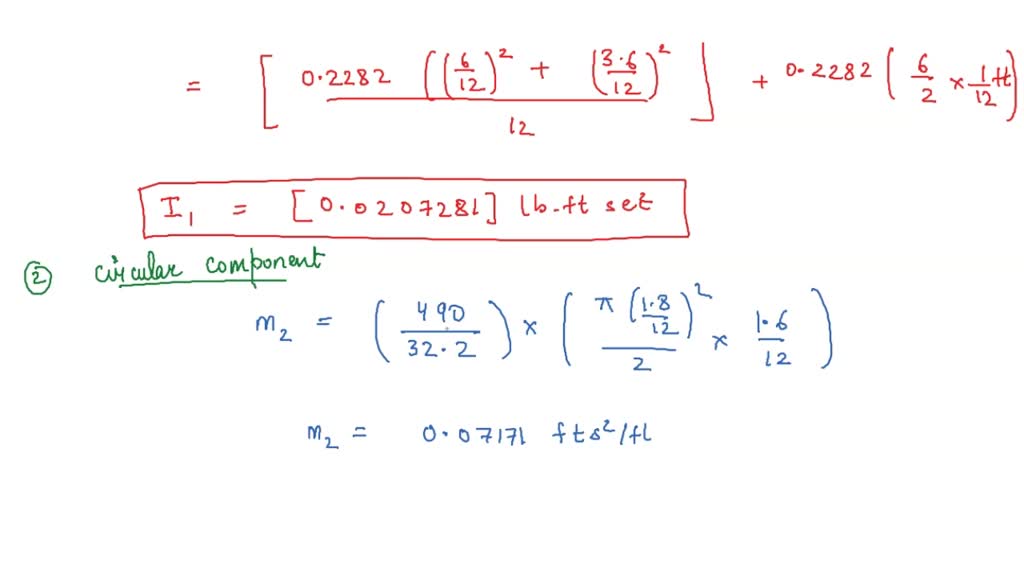 = [ 0.2282 ((6/12)² + (3.6/12)²) / 12 ] + 0.2282 ( 6/2 × 1/12 ft )
I₁ = [0.0207281] lb.ft set
② circular component
m₂ = ( 490 / 32.2 ) × ( π (1.8/12)² / 2 × 1.6/12 )
m₂ = 0.07171 fts²/fl